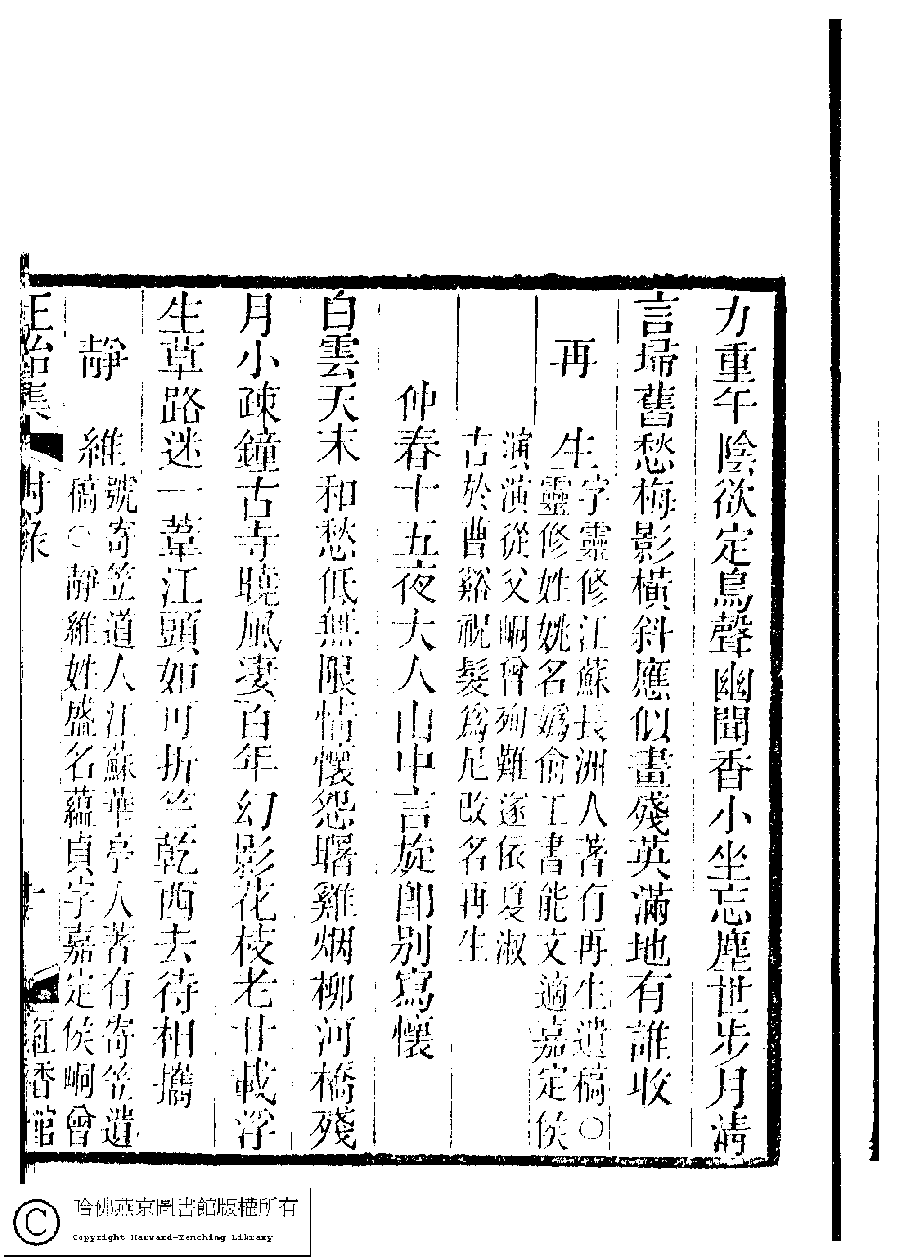 力重午陰欲定鳥聲幽聞香小坐忘塵世步月淸
言埽舊愁梅影橫斜應似畫殘英滿地有誰收
再生
字靈修江蘇長洲人著有再生遺稿○
靈修姓姚名嬀俞工書能文適嘉定侯
演演從父峒曾殉難遂依夏淑
古於曹谿祝髮爲尼改名再生
仲春十五夜大人山中言旋卽别寫懷
白雲天末和愁低無限情懷怨曙雞烟柳河橋殘
月小疎鐘古寺曉風凄百年幻影花枝老廿載浮
生草路迷一葦江頭如可折竺乾西去待相攜
靜維
號寄笠道人江蘇華亭人著有寄笠遺
稿○靜維姓盛名蘊貞字嘉定侯峒曾
正始集
附錄
紅香館
哈佛燕京圖書館版權所有
Copyright Harvard-Yenching Library